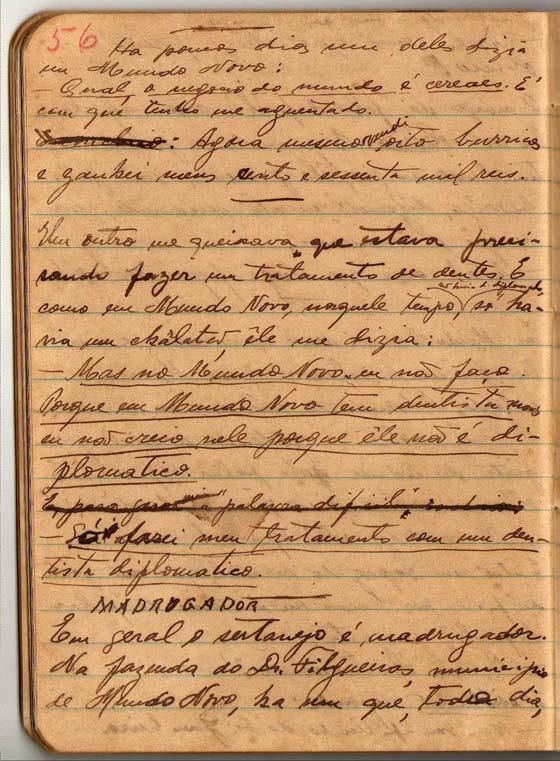 56
Ha poucos dias um deles dizia
em Mundo Novo:
- Geral, o negocio do mundo é cereaes. É
com que tenho me aguentado.
: Agora mesmo vendi oito burricos
e ganhei meus cento e sessenta mil reis.
Um outro me queixava que estava preci-
sando fazer um tratamento de dentes. E
como em Mundo Novo, naquele tempo, só ha-
via um êle me dizia:
- Mas no Mundo Novo eu não faço.
Porque em Mundo Novo tem dentista mas
eu não creio nele porque êle não é di-
plomatico.
E, para "palavra dificil"
- Só farei meu tratamento com um den-
tista diplomatico.
MADRUGADOR
Em geral o sertanejo é madrugador.
Na fazenda do Dr. Filgueiras, municipio
de Mundo Novo, ha um que, todo dia,